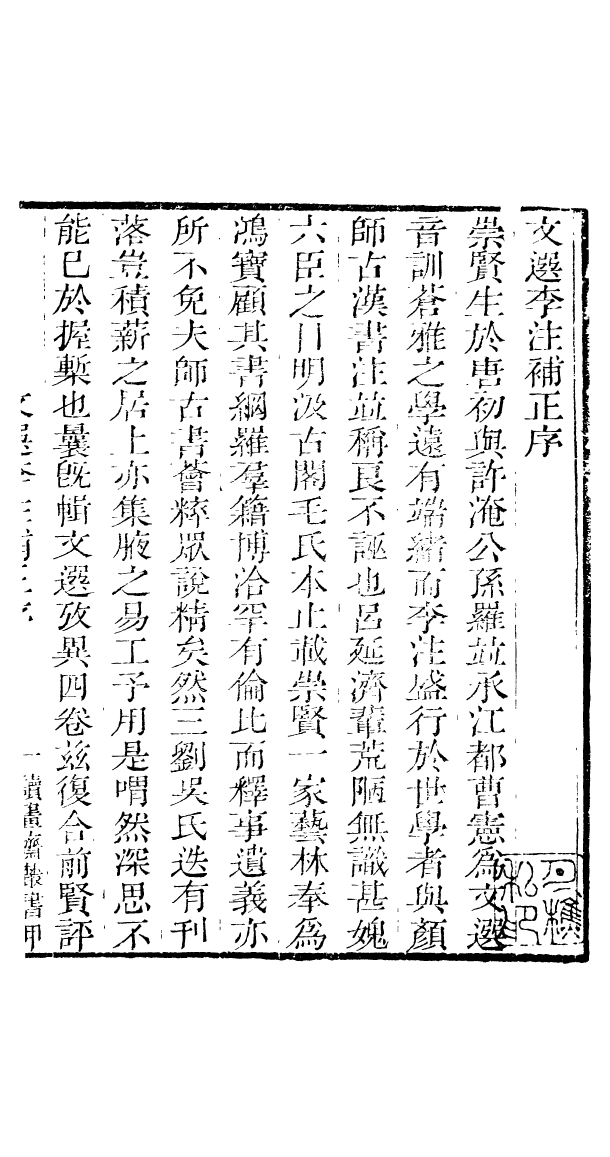 文選李注補正序
崇賢生於唐初與許淹公孫羅並承江都曹憲為文選
音訓蒼雅之學遠有端緒而李注盛行於世學者與顏
師古漢書注並稱良不誣也呂延濟輩荒陋無識甚媿
六臣之目明汲古閣毛氏本止載崇賢一家藝林奉為
鴻寶顧其書綱羅羣籍博洽罕有倫比而釋事遺義亦
所不免夫師古書薈粹眾說精矣然三劉吳氏迭有刊
落豈積薪之居上亦集腋之易工予用是喟然深思不
能已於握槧也曩旣輯文選攷異四卷茲復合前賢評
文選李注補正序
一
讀畫齋叢書甲